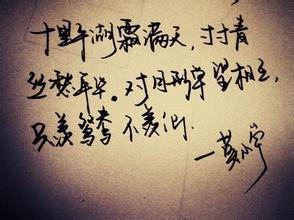 十里平湖霜满天，寸寸青
丝愁年华。对月形单望相互，
只羡鸳鸯不羡仙。
一